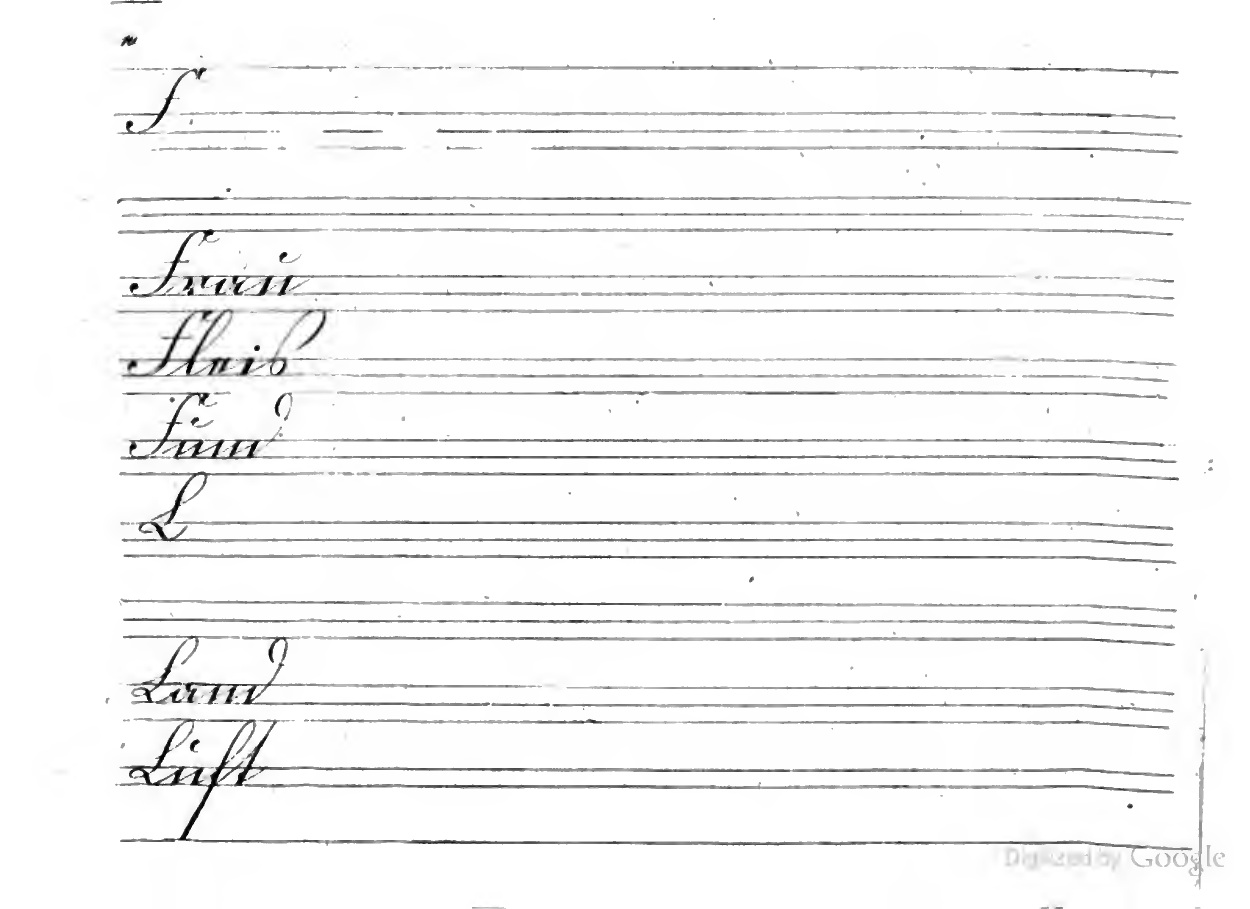 F
Frau
Fleis
Fund
L
Land
Luft
Digitized by Google